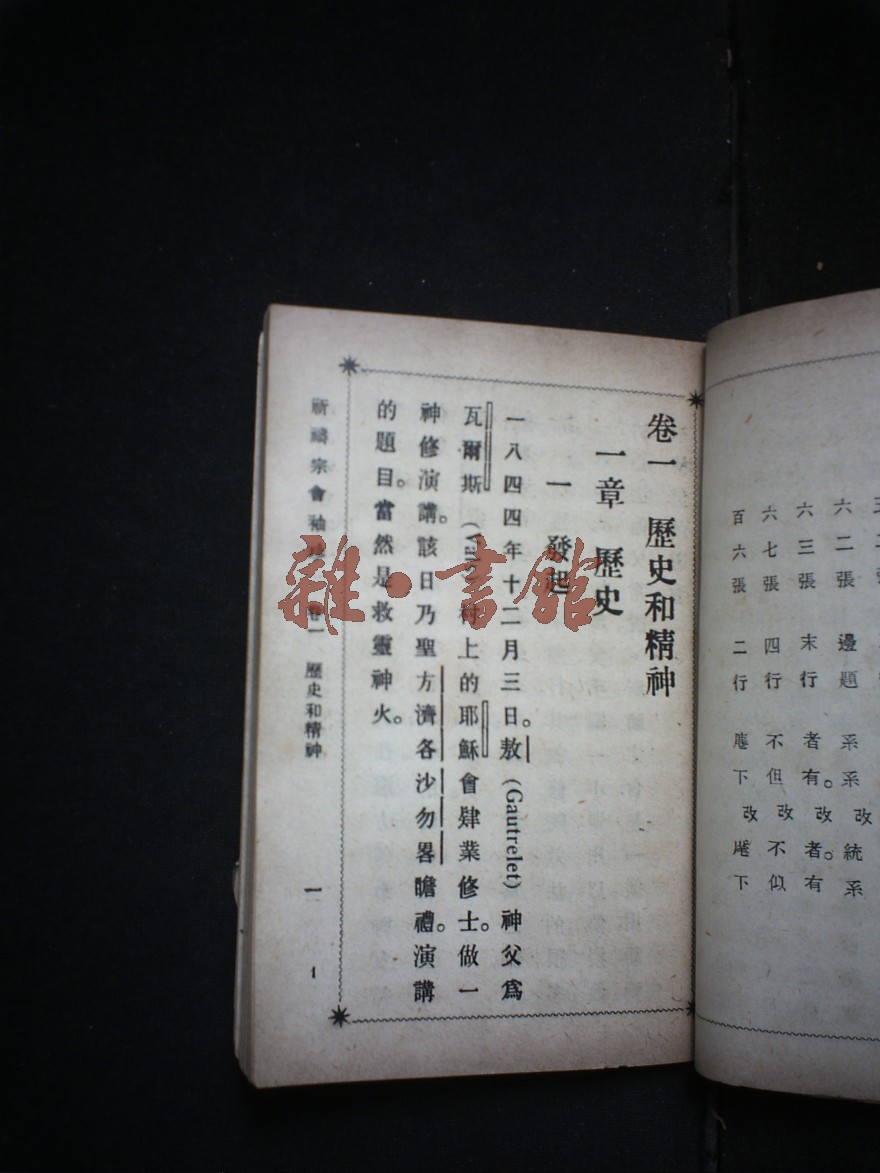 三
六二張 邊題 系系 改 統系
六三張 末行 者有。 改 者。有
六七張 四行 不但 改 不似
百六張 二行 下 改 下
卷一 歷史和精神
一章 歷史
一 發起
一八四四年十二月三日。敖 (Gautrelet) 神父爲
瓦爾斯 上的耶穌會肄業修士。做一
神修演講。該日乃聖方濟各沙勿畧瞻禮。演講
的題目。當然是救靈神火。
祈禱宗會袖 卷一 歷史和精神 一
1
雜·書館